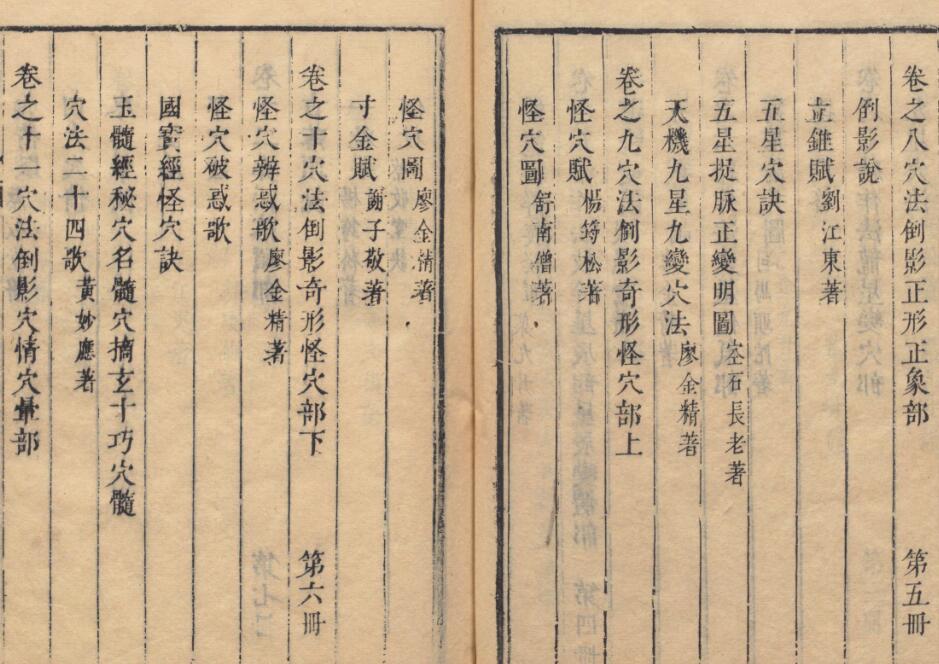 卷之八穴法倒影正形正象部　第五冊
倒影說
立錐賦　劉江東著
五星穴訣
五星捉脉正變明圖　崟石長老著
天機九星九變穴法　廖金精著
卷之九穴法倒影奇形怪穴部上
怪穴賦　楊筠松著
怪穴圖　舒南僧著
怪穴圖　廖金精著
寸金賦　謝子敬著
卷之十穴法倒影奇形怪穴部下　第六冊
怪穴辨惑歌　廖金精著
怪穴破惑歌
國寶經怪穴訣
玉髓經秘穴名髓穴摘玄十巧穴髓
穴法二十四歌　黃妙應著
卷之十一穴法倒影穴情穴暈部